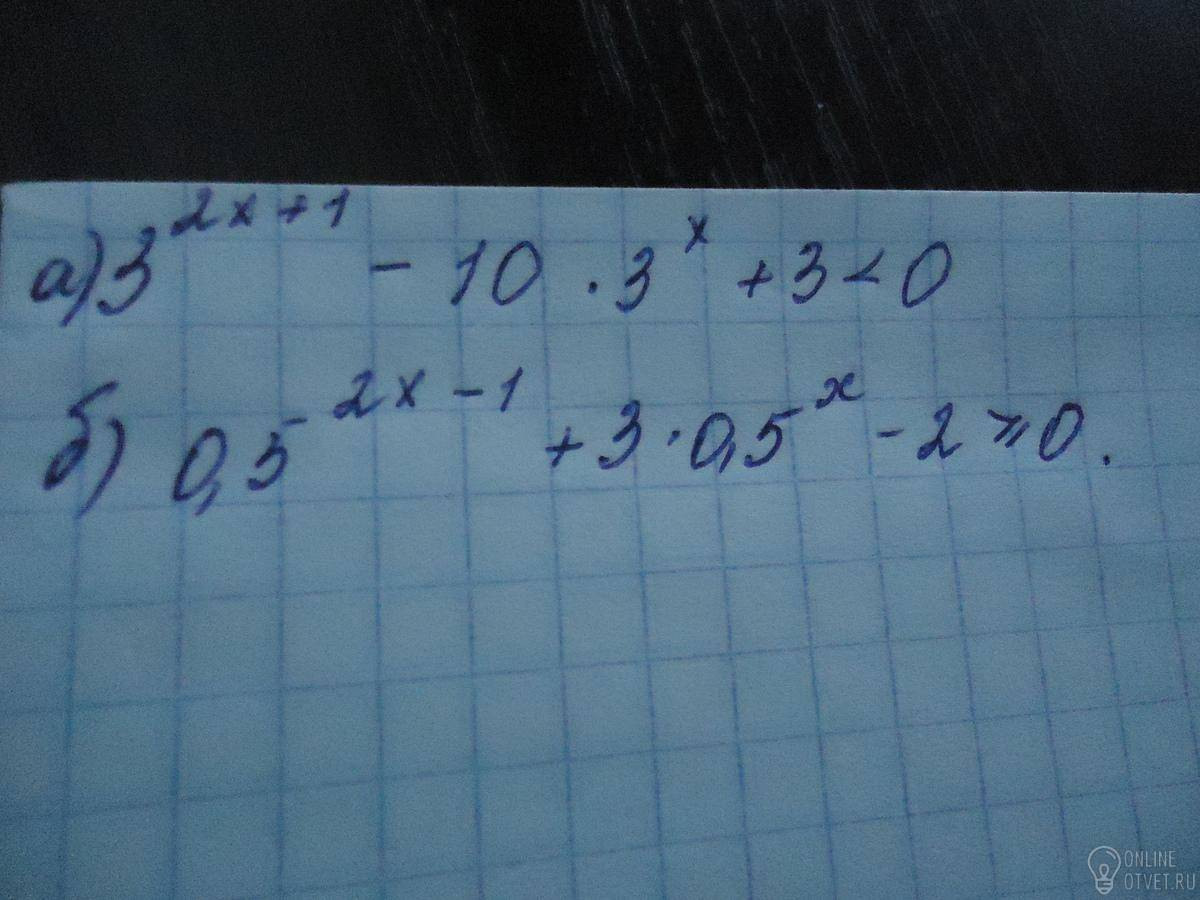 а) 3^{2x+1} - 10 · 3^x + 3 < 0
б) 0,5^{2x-1} + 3 · 0,5^x - 2 ⩾ 0.
ONLINE
OTVET.RU